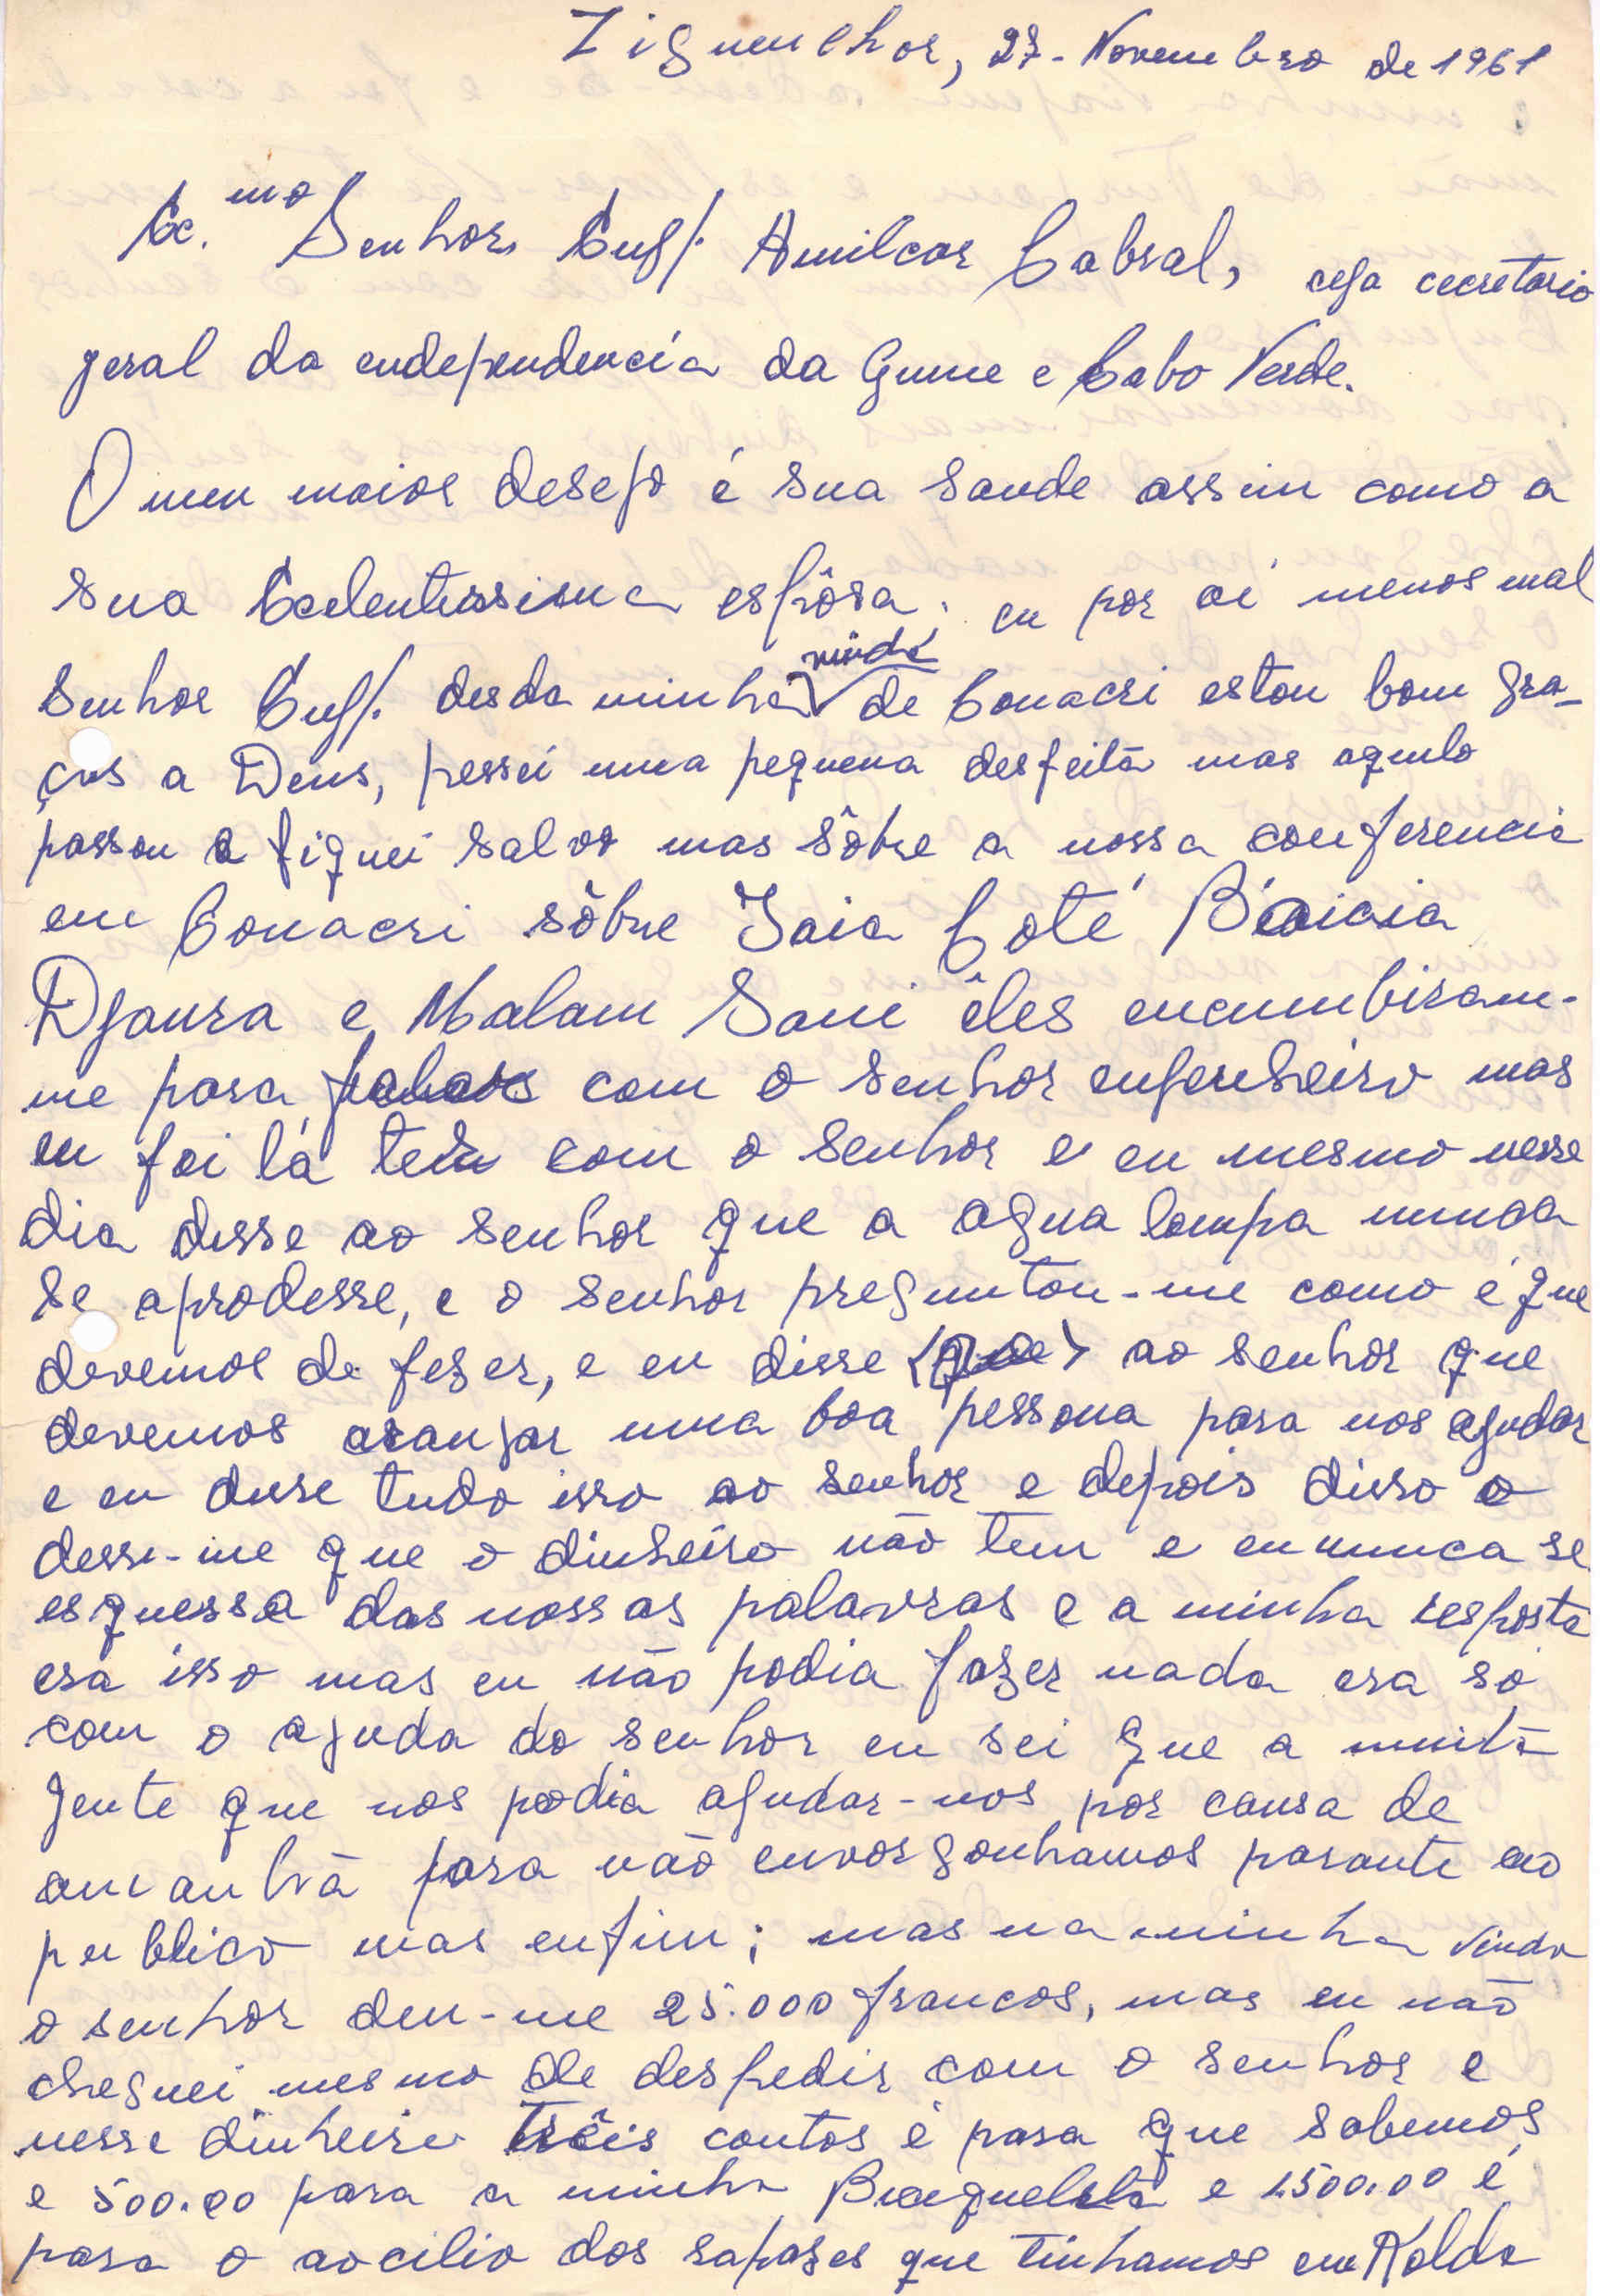 Ziguenchor, 27-Novembro de 1961
Ec.mo Senhor Engº. Amilcar Cabral, cefa cecretario
geral da endependencia da Guine e Cabo Verde.
O meu maior desejo é sua saude assim como a
sua Ecelentissima espôsa. eu por ai menos mal
Senhor Engº. desda minha vinda de Conacri estou bom gra-
ças a Deus, pessei uma pequena desfeita mas aquelo
passou e fiquei salvo mas sôbre a nossa conferencia
em Conacri sôbre Iaia Coté Béaicia
Djaura e Malam Sani êles encumbiram-
me para falar com o senhor enfenheiro mas
eu foi lá ter com o senhor e eu mesmo nesse
dia disse ao senhor que a agua lampa nunca
se aprodesse, e o senhor preguntou-me como é que
devemos de feser, e eu disse (que) ao senhor que
devemos aranjar uma boa pessoua para nos ajudar
e eu disse tudo isso ao senhor e depois disso o
dessi-me que o dinheiro não tem e eu nunca se
esquessa das nossas palavras e a minha resposta
era isso mas eu não podia fazer nada era só
com o ajuda do senhor eu sei que a muita
gente que nos podia ajudar-nos por causa de
amanhã para não envorgonhamos parante ao
publico mas enfim; mas na minha vinda
o senhor deu-me 25.000 francos, mas eu não
cheguei mesmo de despedir com o senhor e
nesse dinheiro trêis contos é para que sabemos
e 500.00 para a minha e 1.500.00 é
para o aocilio dos rapazes que tinhamos em Kolda